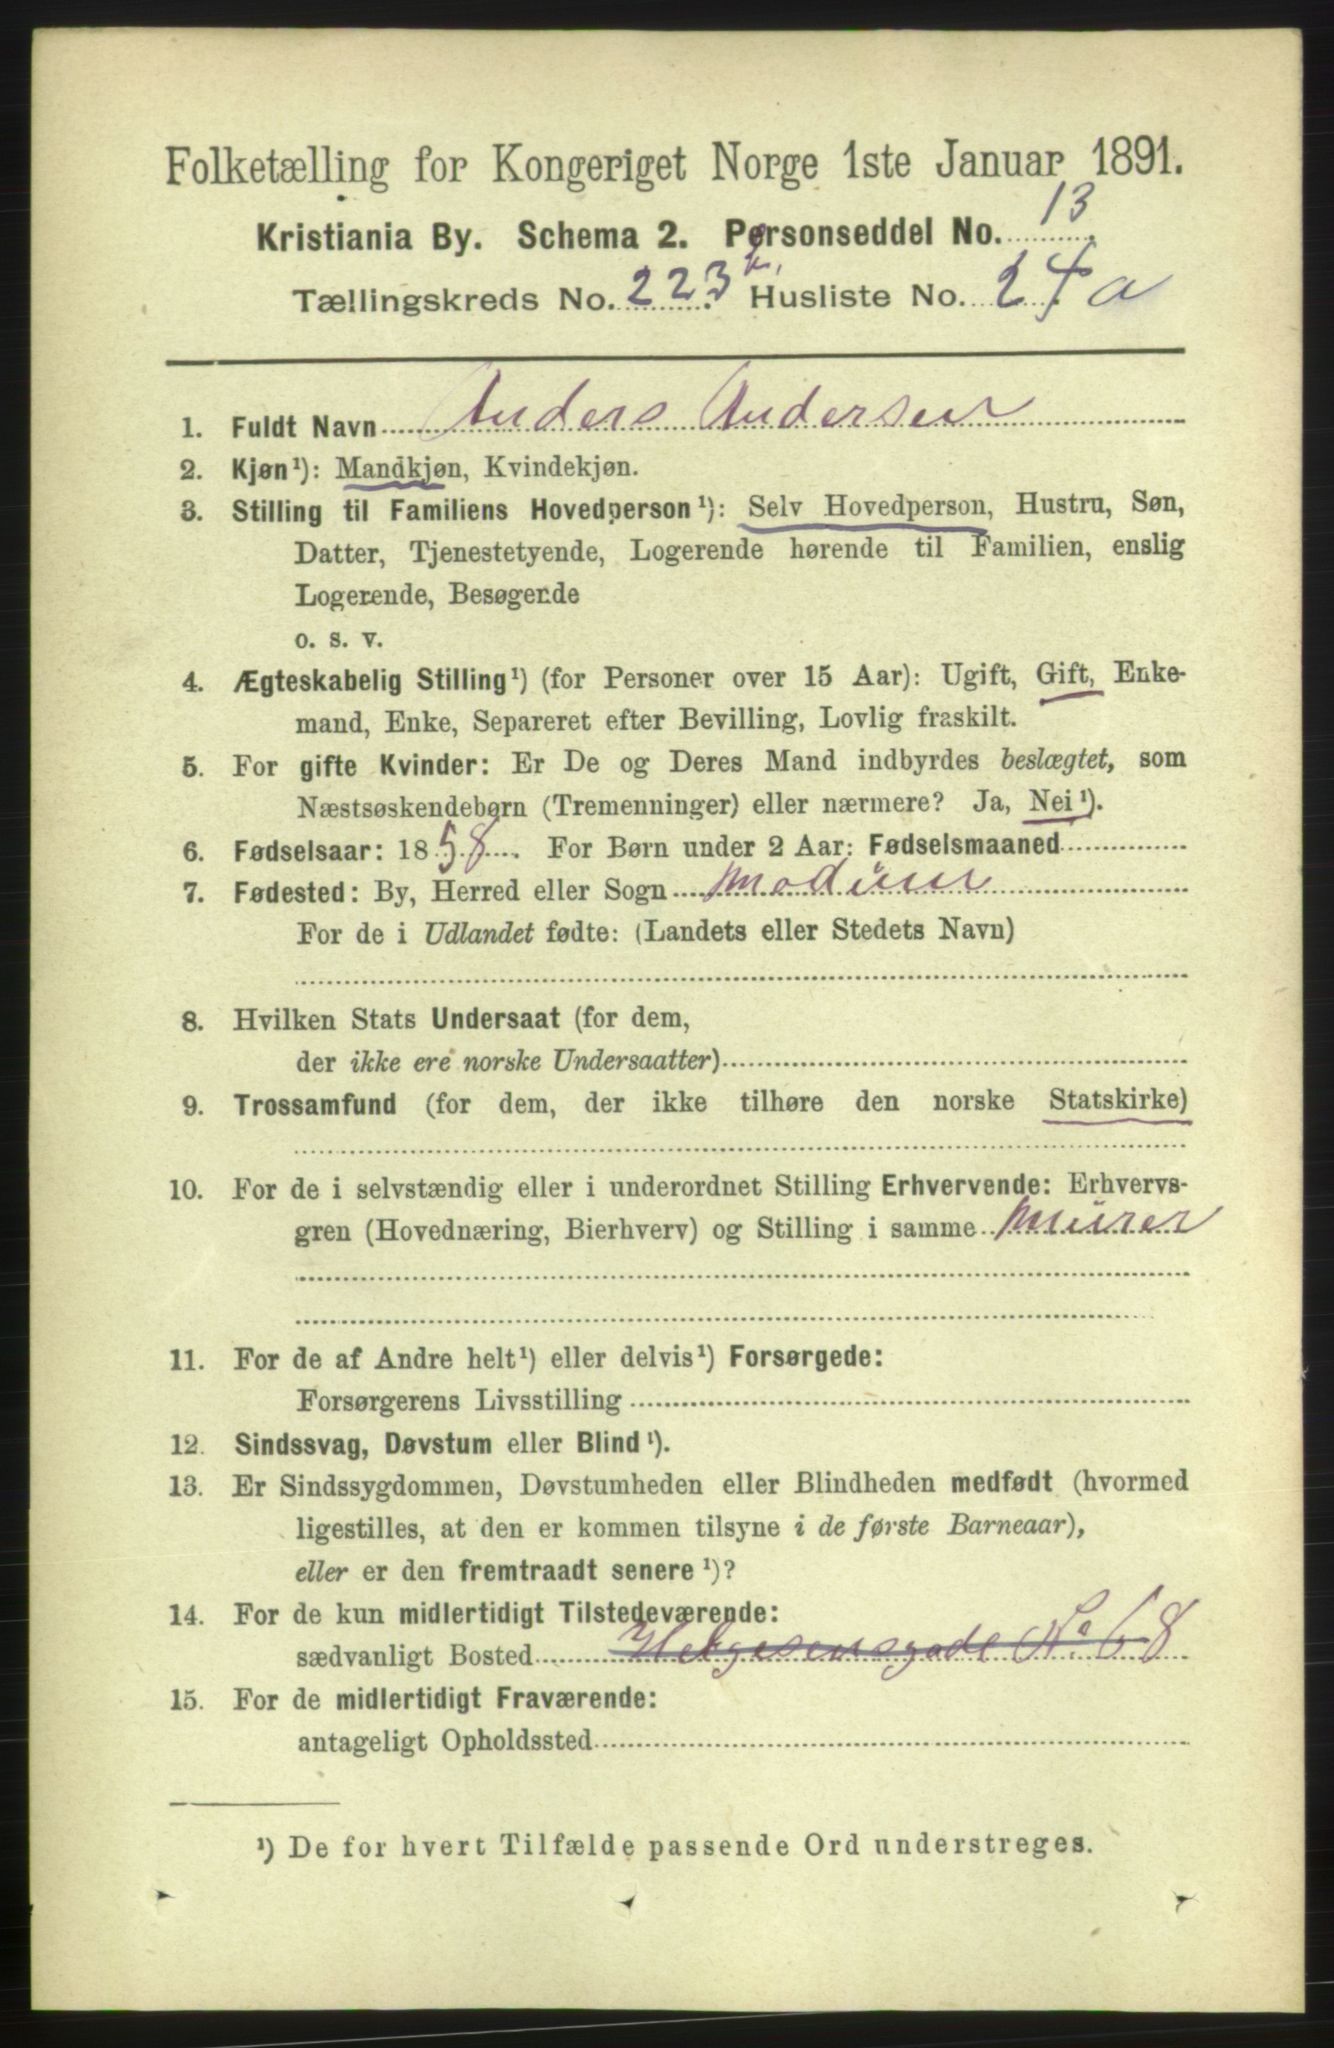 Folketælling for Kongeriget Norge 1ste Januar 1891.
Kristiania By. Schema 2. Personseddel No. 13
Tællingskreds No. 223. Husliste No. 24 a
1. Fuldt Navn Anders Andersen
2. Kjøn¹): Mandkjøn, Kvindekjøn.
3. Stilling til Familiens Hovedperson¹): Selv Hovedperson, Hustru, Søn,
Datter, Tjenestetyende, Logerende hørende til Familien, enslig
Logerende, Besøgende
o. s. v.
4. Ægteskabelig Stilling¹) (for Personer over 15 Aar): Ugift, Gift, Enke-
mand, Enke, Separeret efter Bevilling, Lovlig fraskilt.
5. For gifte Kvinder: Er De og Deres Mand indbyrdes beslægtet, som
Næstsøskendebørn (Tremenninger) eller nærmere? Ja, Nei¹).
6. Fødselsaar: 1858. For Børn under 2 Aar: Fødselsmaaned
7. Fødested: By, Herred eller Sogn Modum
For de i Udlandet fødte: (Landets eller Stedets Navn)
8. Hvilken Stats Undersaat (for dem,
der ikke ere norske Undersaatter)
9. Trossamfund (for dem, der ikke tilhøre den norske Statskirke)
10. For de i selvstændig eller i underordnet Stilling Erhvervende: Erhvervs-
gren (Hovednæring, Bierhverv) og Stilling i samme Murer
11. For de af Andre helt¹) eller delvis¹) Forsørgede:
Forsørgerens Livsstilling
12. Sindssvag, Døvstum eller Blind¹).
13. Er Sindssygdommen, Døvstumheden eller Blindheden medfødt (hvormed
ligestilles, at den er kommen tilsyne i de første Barneaar),
eller er den fremtraadt senere¹)?
14. For de kun midlertidigt Tilstedeværende:
sædvanligt Bosted Helgesensgade No 68
15. For de midlertidigt Fraværende:
antageligt Opholdssted
¹) De for hvert Tilfælde passende Ord understreges.